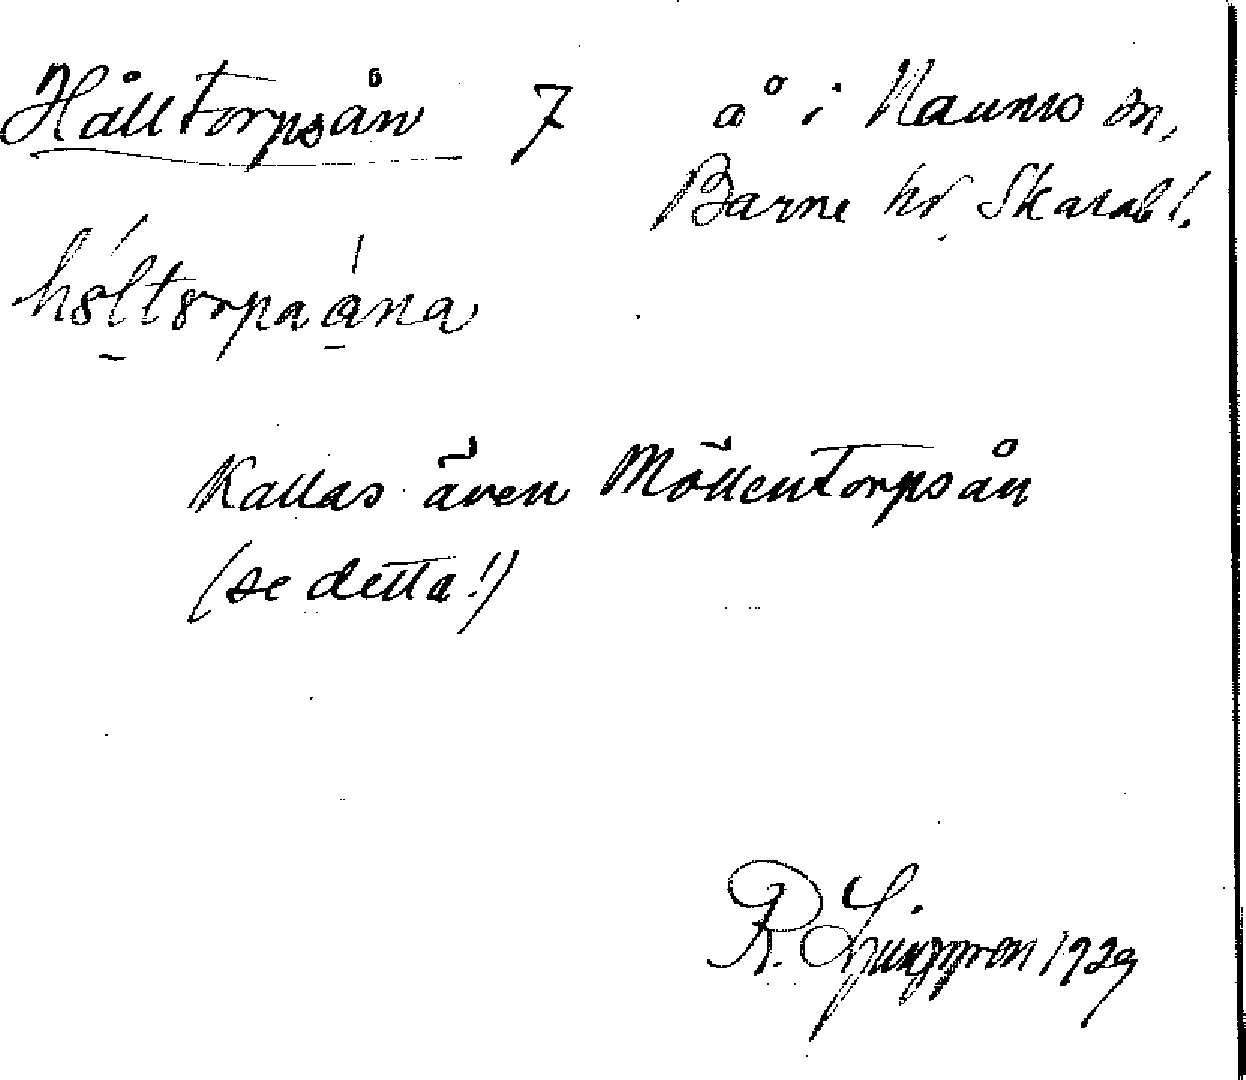 Hålltorpsån 7 å i Naums sn,
Barne hd Skarab l.
Kallas även Möllentorpsån
(se detta!)
R. Ljunggren 1929